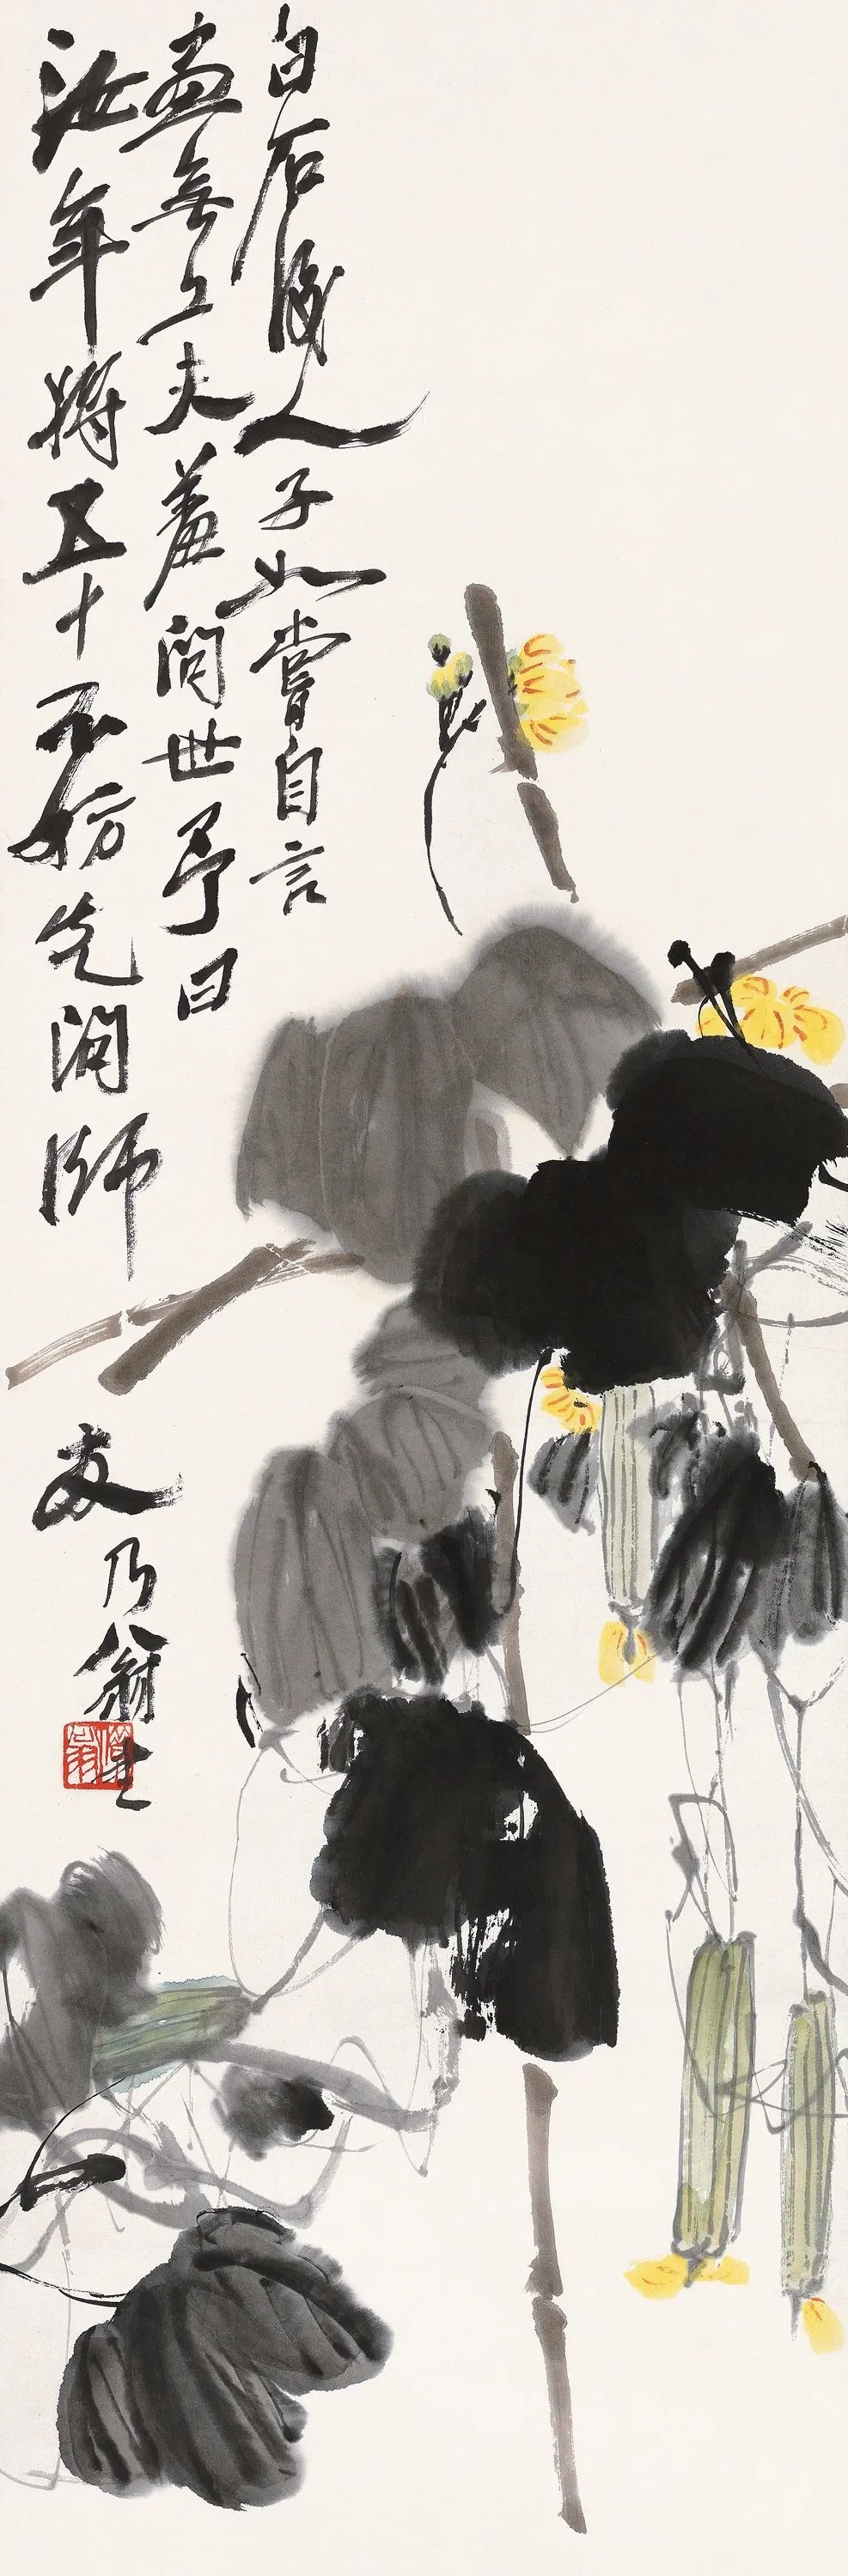 白石後人子如嘗自言
畫無工夫羞問世予曰
汝年將五十不妨先問師
友乃翁